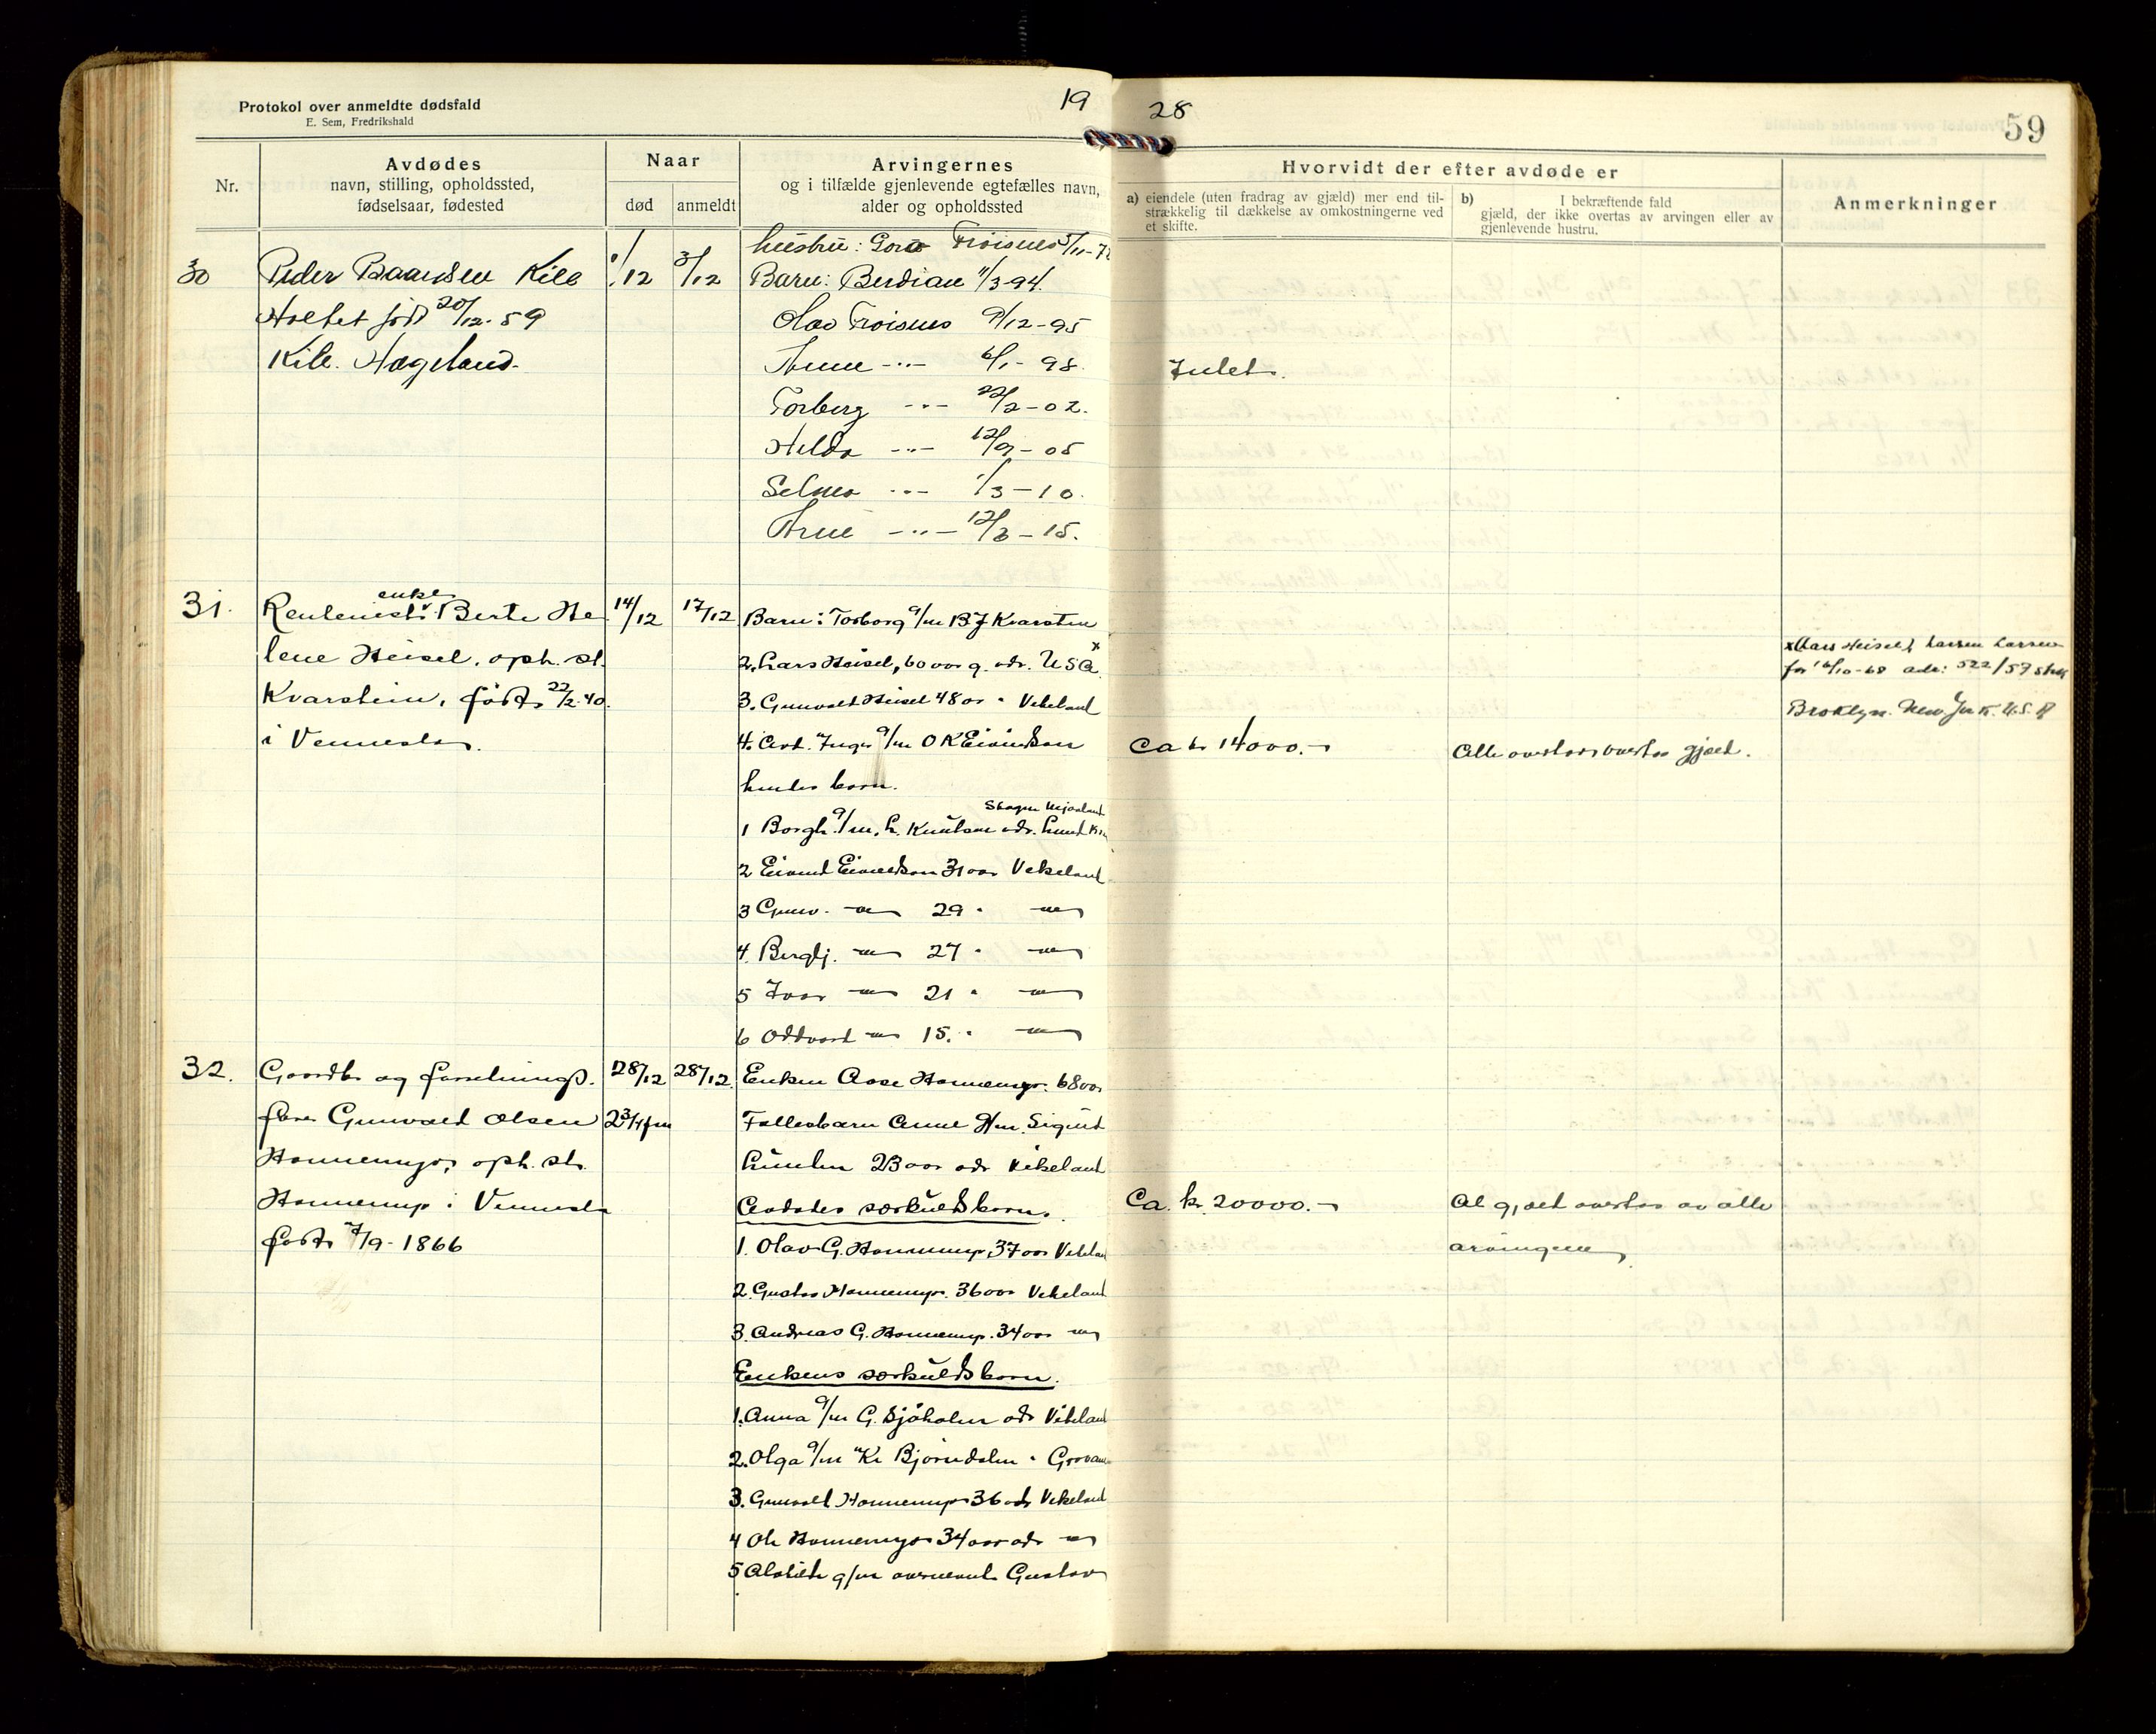 Protokol over anmeldte dødsfald
E. Sem, Fredrikshald
19 28
59
Nr.
Avdødes
navn, stilling, opholdssted,
fødselsaar, fødested
Naar
død
anmeldt
Arvingernes
og i tilfælde gjenlevende egtefælles navn,
alder og opholdssted
Hvorvidt der efter avdøde er
a) eiendele (uten fradrag av gjæld) mer end til-
strækkelig til dækkelse av omkostningerne ved
et skifte.
b) I bekræftende fald
gjæld, der ikke overtas av arvingen eller av
gjenlevende hustru.
Anmerkninger
30
Peder Kile
Holtet født 20/12-59
Kile. Hægeland.
/12
3/12
Hustru: Frøisnes 5/11-7
Barn: Berdian 11/3-94.
Olav Frøisnes 9/12-95
6/1-98.
Torberg -"- 22/2-02.
Hilda -"- 12/9-05
Selma -"- 1/3-10.
Arne -"- 12/3-15.
Intet.
31.
enke
Rentenist Berte He
lene Heisel, oph. st.
Kvarstein, født 22/2-40.
i Vennesla.
14/12
17/12
Barn: Torborg g/m B J Kvarstein
2. Lars Heisel, 60 aar g. adr. USA x
3. Gunvald Heisel 48 aar " Vikeland
4. Avd. Inger g/m O K Eivindson
hendes barn.
Skagen Mjaaland
1 Borgh. g/m. L. Knutsen adr. Lund
2 Eivind Eivindson 31 aar Vikeland
3 Gunv. -"- 29 " -"-
4. Berglj. -"- 27 " -"-
5 Ivar -"- 21 " -"-
6 Oddvard -"- 15. " -"-
Ca kr 14000.-
gjæld.
x Lars Heisel, Larsen
før 16/10-68 adr: 522/57
Broklyn. New York. U.S.A
32.
Gaardbr og forretnings-
fører Gunvald Olsen
Honnemyr, oph. st.
Honnemyr i Vennesla
født 7/9-1866
28/12
2 3/4 fm
28/12
Enken Aase Honnemyr. 68 aar
Fellesbarn Anne g/m. Sigurd
23 aar adr Vikeland
Avdødes særkuldsbarn.
1. Olav G. Honnemyr 37 aar Vikelan
2. Gustav Honnemyr. 36 aar Vikeland
3. Andreas G. Honnemyr. 34 aar -"-
Enkens særkuldsbarn.
1. Anna g/m G. Sjøholm adr Vikeland
2. Olga g/m Kr Bjørndalen " Grovane
3. Gunvald Honnemyr 36 adr Vikeland
4 Ole Honnemyr 34 aar adr -"-
5 Alvilde g/m Gustav
Ca. kr. 20000.-
Al gjæld overtas av alle
arvingene